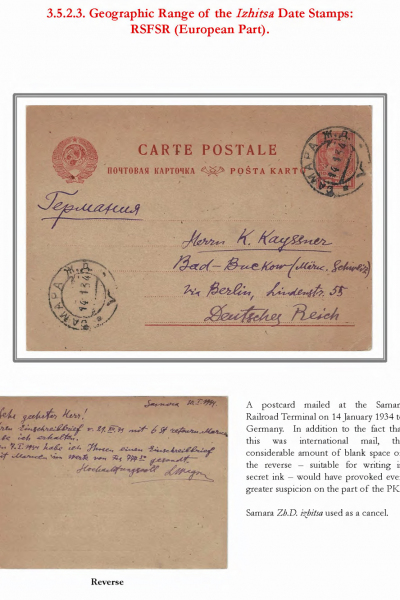 3.5.2.3. Geographic Range of the Izhitsa Date Stamps:
RSFSR (European Part).
CARTE POSTALE
ПОЧТОВАЯ КАРТОЧКА POŠTA KART
САМАРА Ж.Д.
14.1.34
Германия
Herrn K. Kayssner
Bad-Buckow (Märk. Schweiz)
Via Berlin, Lindenstr. 55
Deutsches Reich
САМАРА Ж.Д.
14.1.34
Samara 10.I.1934.
geehrter Herr!
Einschreibbrief v. 29.XII.33 mit 6 St
ich erhalten.
1934 habe ich Ihnen einen Einschreibbrief
Marken im werte von
Hochachtungsvoll
A postcard mailed at the Samar
Railroad Terminal on 14 January 1934 to
Germany. In addition to the fact that
this was international mail, th
considerable amount of blank space or
the reverse – suitable for writing in
secret ink – would have provoked ever
greater suspicion on the part of the PK.
Samara Zh.D. izhitsa used as a cancel.
Reverse